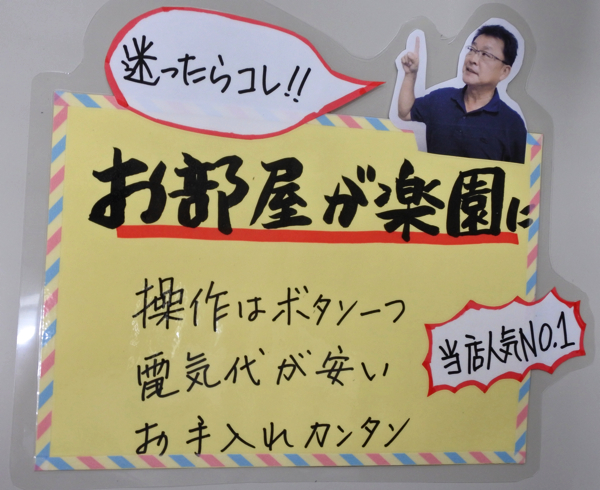 迷ったらコレ!!
お部屋が楽園に
操作はボタン一つ
電気代が安い
お手入れカンタン
当店人気NO.1